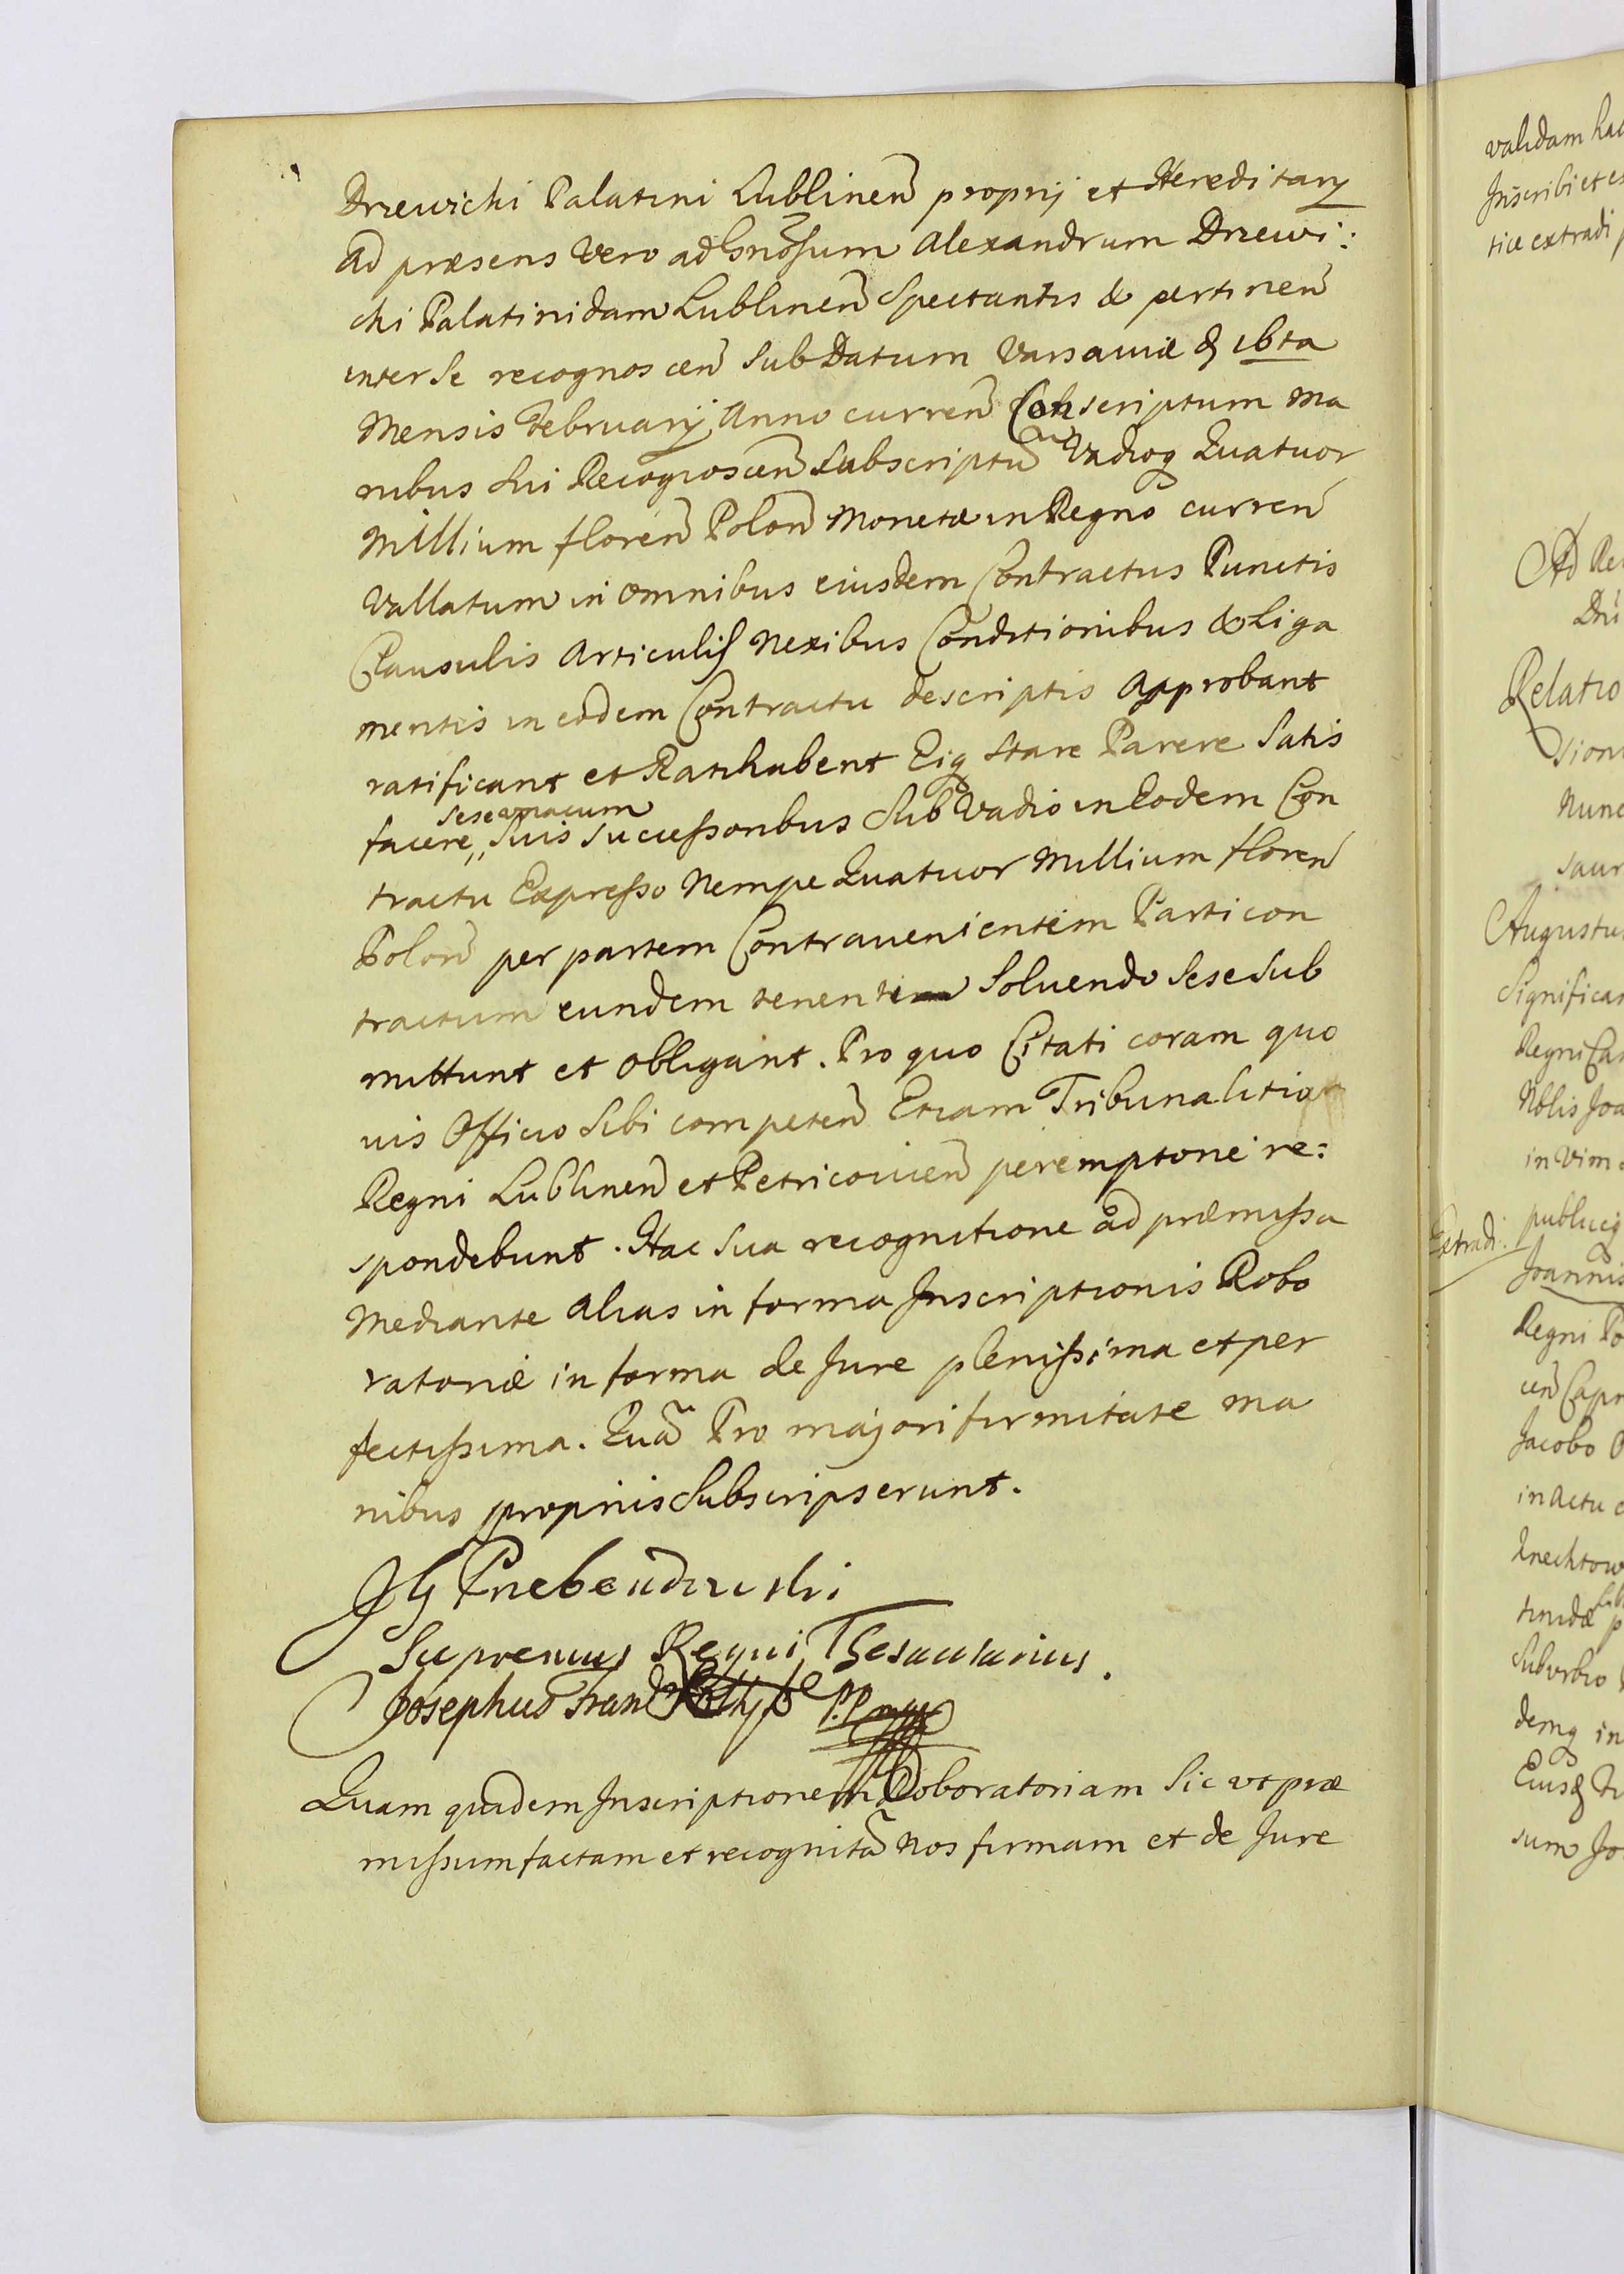 Drzewichi Palatini Lublineñ proprij et Hereditary
ad præsens vero ad Gnosum Alexandrum Drzewi:
chi Palatinidam Lublineñ Spectantis & pertineñ
inter Se recognosceñ Sub Datum Varsaviæ ibta
Mensis February Anno curreñ Conscriptum ma
nibus Sui Recognosceñ Subscriptũ Vadioq Quatuor
Millium floreñ Poloñ Monetæ in Regno curreñ
Vallatum in omnibus eiusdem Contractus Punctis
Clausulis Articulis Nexibus Conditionibus & Liga
mentis in eodem Contractu descriptis approbant
ratificant et Ratihabent Eiq stare Parere Satis
sese ac cum
facere,, Suis Successoribus Sub Vadio in Eodem Con
tractu Expresso Nempe Quatuor Millium floreñ
Poloñ per partem Contravenientem Parti con
tractum eundem tenenti Solvendo Sese Sub
mittunt et obligant. Pro quo Citati coram quo
vis Officio Sibi competeñ Etiam Tribunalitio
Regni Lublineñ et Petricovieñ peremptorie re:
spondebunt. Hac Sua recognitione ad præmissa
Mediante alias in forma Inscriptionis Robo
ratoriæ in forma de Jure plenissima et per
fectissima. Quã Pro majori firmitate ma
nibus propriis Subscripserunt.
JG Przebendowski
Supremus Regni Thesaurarius.
Josephus Fran
Quam quidem Inscriptionem Roboratoriam Sic ut præ
missum factam et recognitã Nos firmam et de Jure
validam hac
Inscribi et
tice extradi
Ad
Relatio
sion
Nunc
saur
Augustu
Significa
Regni Ca
Nblis Joa
in vim
Extradi:
publicq
Joannis
Regni Po
Capn
Jacobo
in actu
tinidæ
Suburbio
demq in
sum Jo